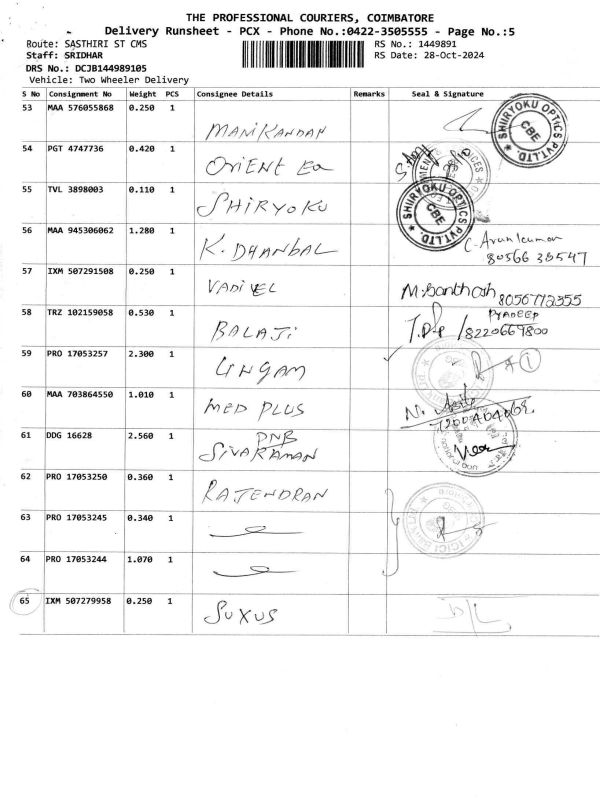 THE PROFESSIONAL COURIERS, COIMBATORE
Delivery Runsheet - PCX - Phone No.:0422-3505555 - Page No.:5
Route: SASTHIRI ST CMS RS No.: 1449891
Staff: SRIDHAR RS Date: 28-Oct-2024
DRS No.: DCJB144989105
Vehicle: Two Wheeler Delivery
S No Consignment No Weight PCS Consignee Details Remarks Seal & Signature
53 MAA 576055868 0.250 1
MANIKANDAN
SHIRYOKU OPTICS PVT.LTD. CBE
54 PGT 4747736 0.420 1
ORIENT
55 TVL 3898003 0.110 1
SHIRYOKU
SHIRYOKU OPTICS PVT.LTD. CBE
56 MAA 945306062 1.280 1
K. DHANBAL
C. Arunkumar
80566 38547
57 IXM 507291508 0.250 1
VADIVEL
M. Santhosh 8056772355
58 TRZ 102159058 0.530 1
BALAJI
PRADEEP
/8220669800
59 PRO 17053257 2.300 1
LINGAM
1
60 MAA 703864550 1.010 1
MED PLUS
61 DDG 16628 2.560 1
PNB
SIVARAMAN
62 PRO 17053250 0.360 1
RAJENDRAN
63 PRO 17053245 0.340 1
64 PRO 17053244 1.070 1
65 IXM 507279958 0.250 1
SUXUS
D/L